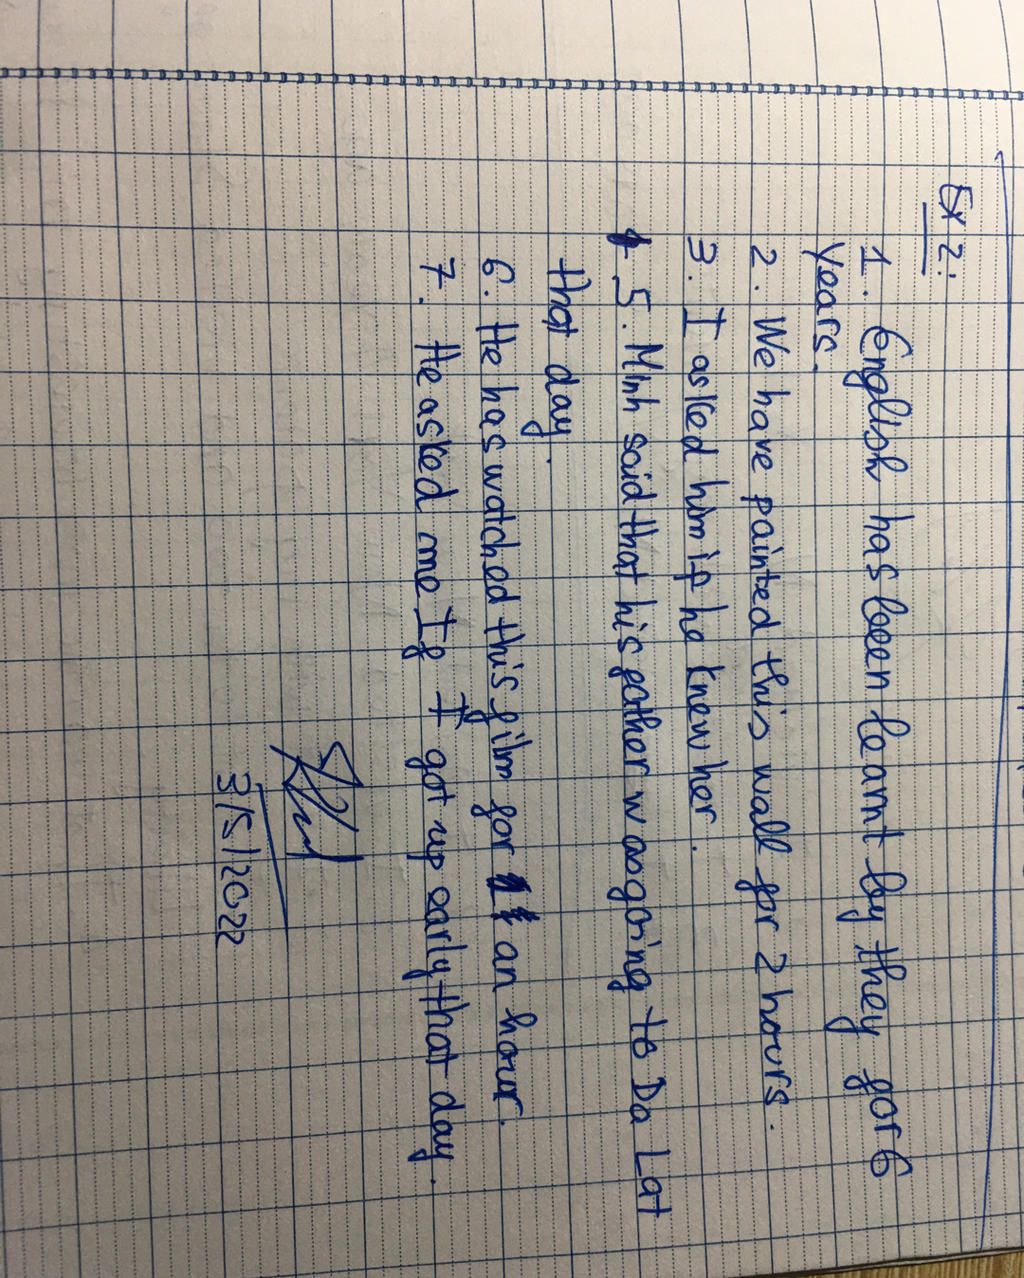 Ex 2:
1. English has been learnt by they for 6
years.
2. We have painted this wall for 2 hours.
3. I asked him if he knew her.
5. Minh said that his father was going to Da Lat
that day.
6. He has watched this film for an hour.
7. He asked me If I got up early that day.
3/5/2022